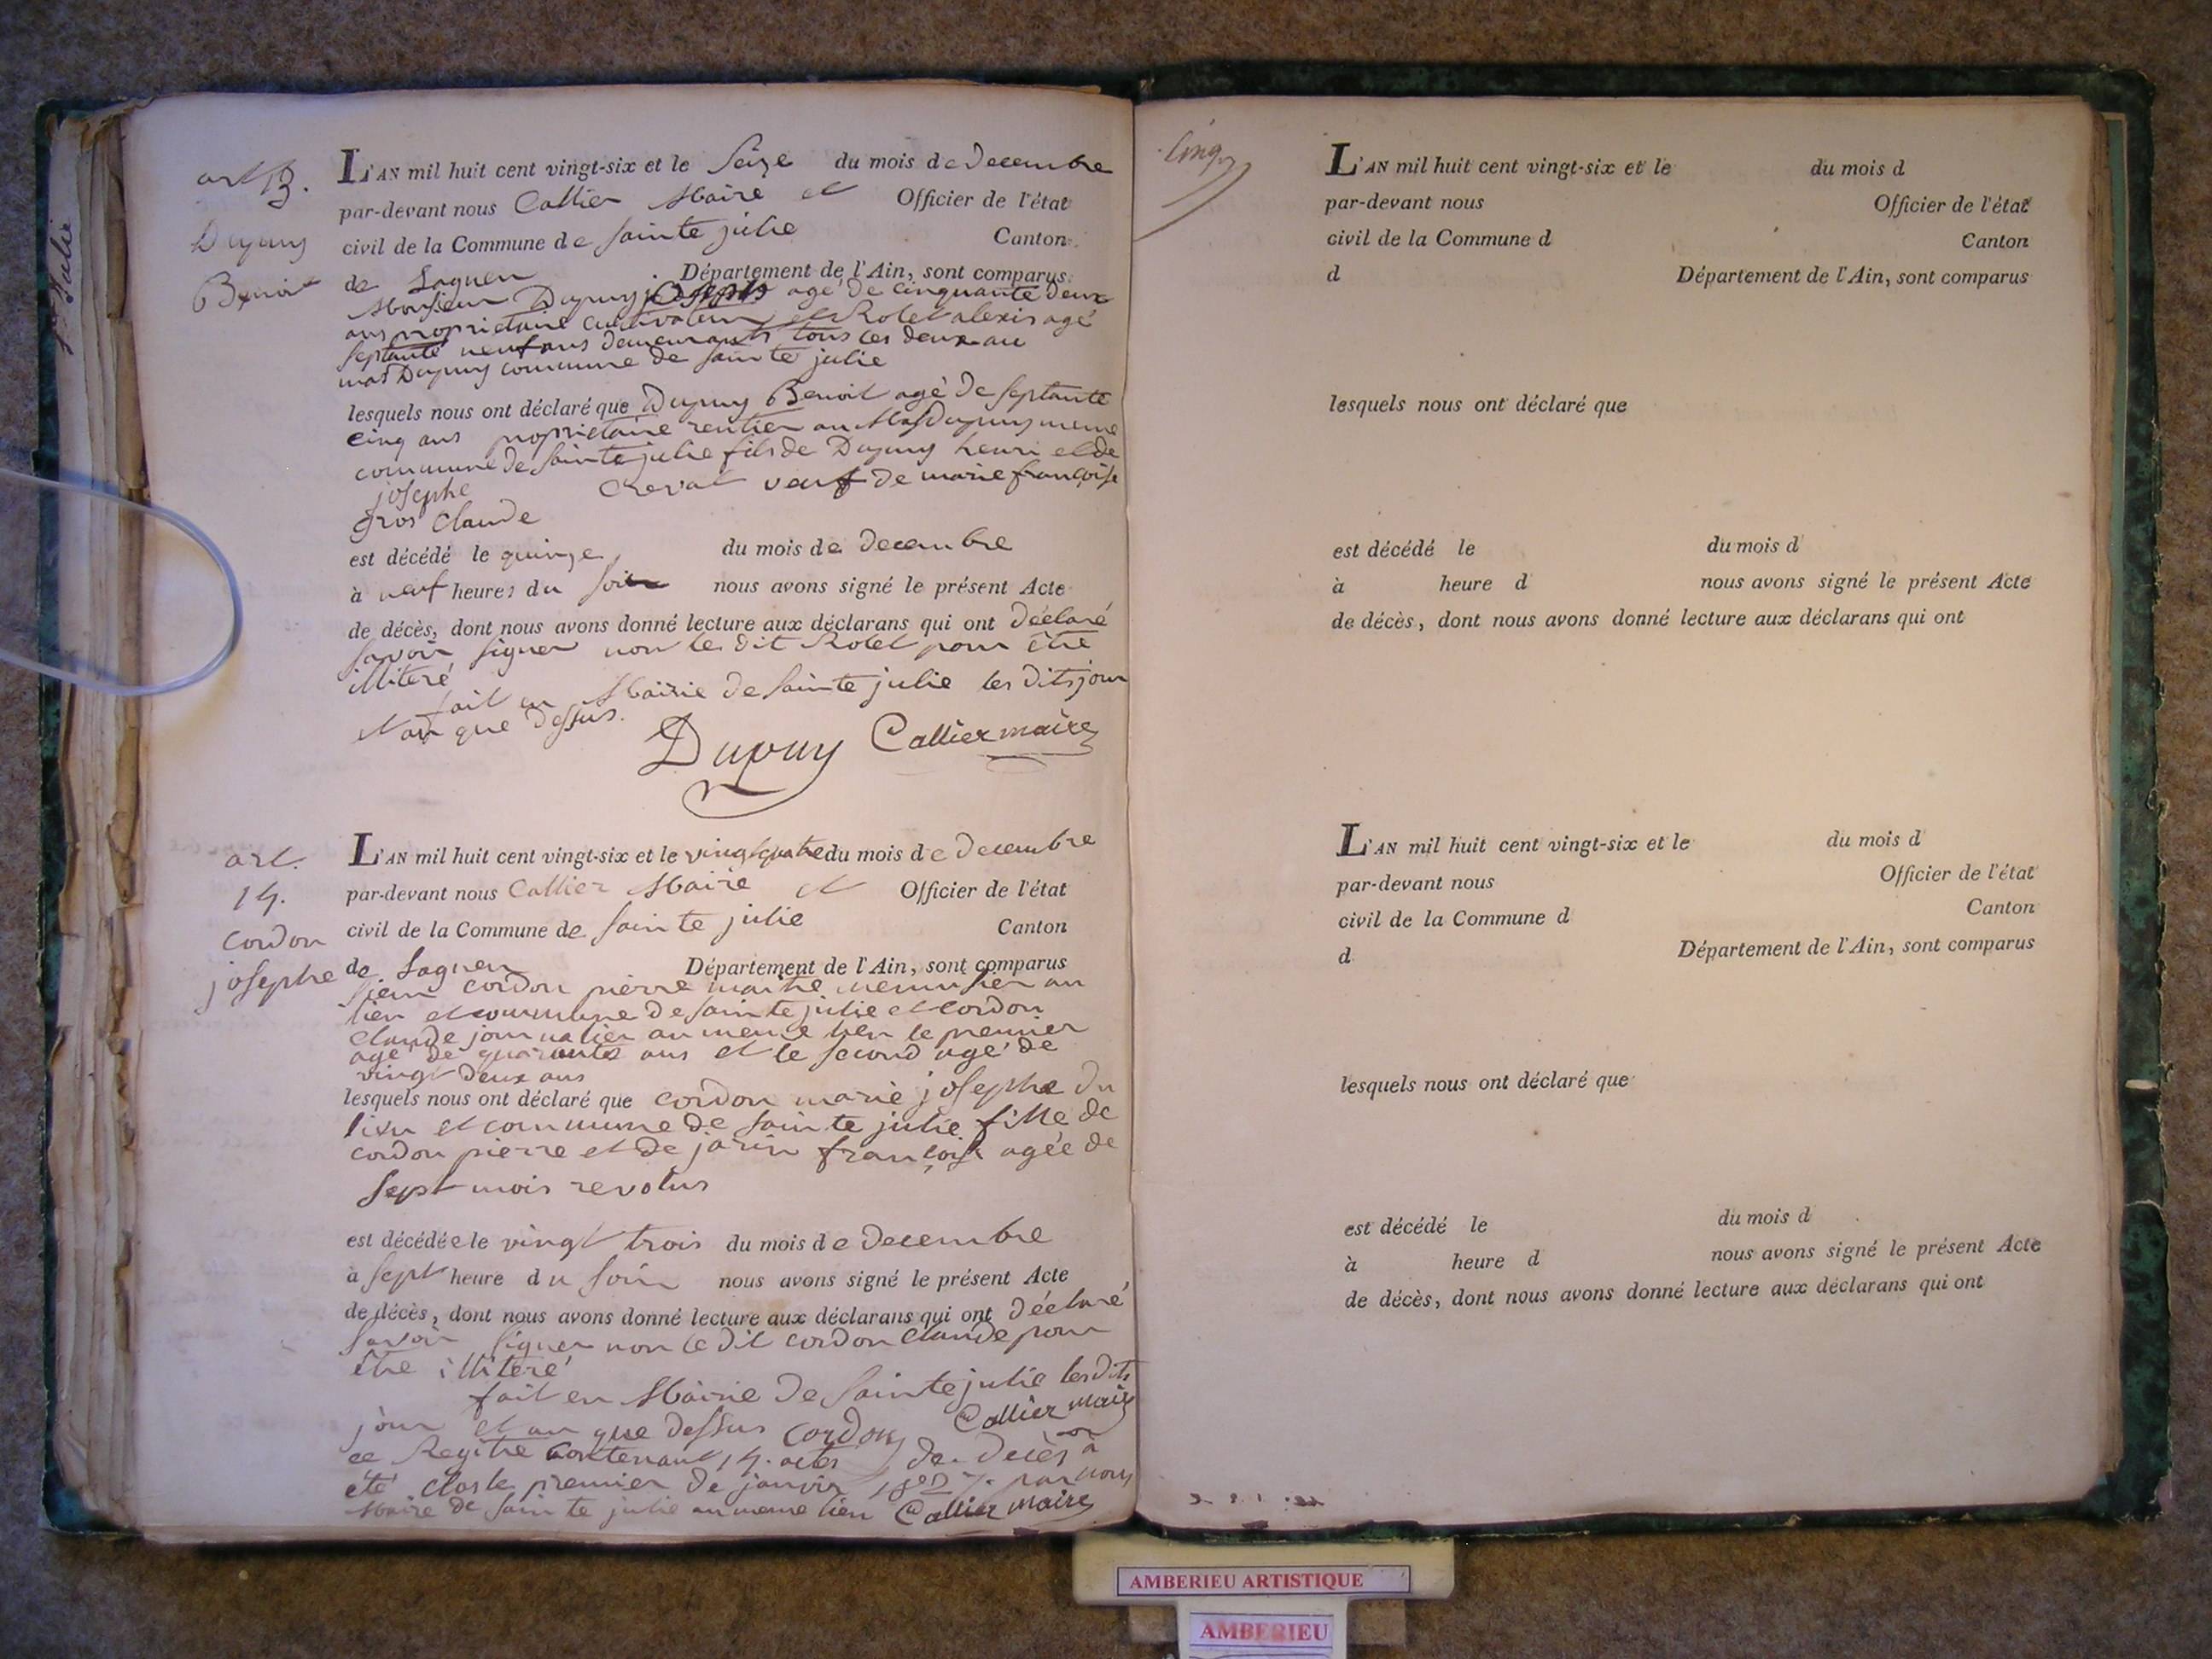 Ste Julie
art 13.
Dupuy
Benoit
L'AN mil huit cent vingt-six et le Seize du mois de decembre
par-devant nous Callier Maire et Officier de l'état
civil de la Commune de Sainte julie Canton
de Lagneu Département de l'Ain, sont comparus
Monsieur Dupuy joseph agé de cinquante deux
ans proprietaire cultivateur et Rolet alexis agé
septante neuf ans demeurants tous les deux au
mas Dupuy commune de sainte julie
lesquels nous ont déclaré que Dupuy Benoit agé de septante
cinq ans proprietaire rentier au Mas Dupuy meme
commune de Sainte julie fils de Dupuy henri et de
josephe Creval veuf de marie françoise
gros Claude
est décédé le quinze du mois de decembre
à neuf heures du soir nous avons signé le présent Acte
de décès, dont nous avons donné lecture aux déclarans qui ont déclaré
savoir signer non le dit Rolet pour être
illiteré
fait en Mairie de Sainte julie les dits jour
et an que dessus.
Dupuy Callier maire
art.
14.
cordon
josephe
L'AN mil huit cent vingt-six et le vingt quatre du mois de decembre
par-devant nous Callier Maire et Officier de l'état
civil de la Commune de Sainte julie Canton
de Lagneu Département de l'Ain, sont comparus
sieur cordon pierre maitre menusier au
lieu et commune de sainte julie et cordon
Claude journalier au meme lieu le premier
agé de quarante ans et le second agé de
vingt deux ans
lesquels nous ont déclaré que cordon marie josephe du
lieu et commune de sainte julie fille de
cordon pierre et de jarin françoise agée de
sept mois revolus
est décédée le vingt trois du mois de decembre
à sept heure du soir nous avons signé le présent Acte
de décès, dont nous avons donné lecture aux déclarans qui ont déclaré
savoir signer non le dit cordon Claude pour
être illiteré
fait en Mairie de Sainte julie les dits
jour et an que dessus cordon Callier maire
ce Regitre contenant 14. actes de decès à
été clos le premier de janvier 1827. par nous
Maire de sainte julie au meme lieu Callier maire
cinq
L'AN mil huit cent vingt-six et le du mois d
par-devant nous Officier de l'état
civil de la Commune d Canton
d Département de l'Ain, sont comparus
lesquels nous ont déclaré que
est décédé le du mois d
à heure d nous avons signé le présent Acte
de décès, dont nous avons donné lecture aux déclarans qui ont
L'AN mil huit cent vingt-six et le du mois d
par-devant nous Officier de l'état
civil de la Commune d Canton
d Département de l'Ain, sont comparus
lesquels nous ont déclaré que
est décédé le du mois d
à heure d nous avons signé le présent Acte
de décès, dont nous avons donné lecture aux déclarans qui ont
AMBERIEU ARTISTIQUE
AMBERIEU